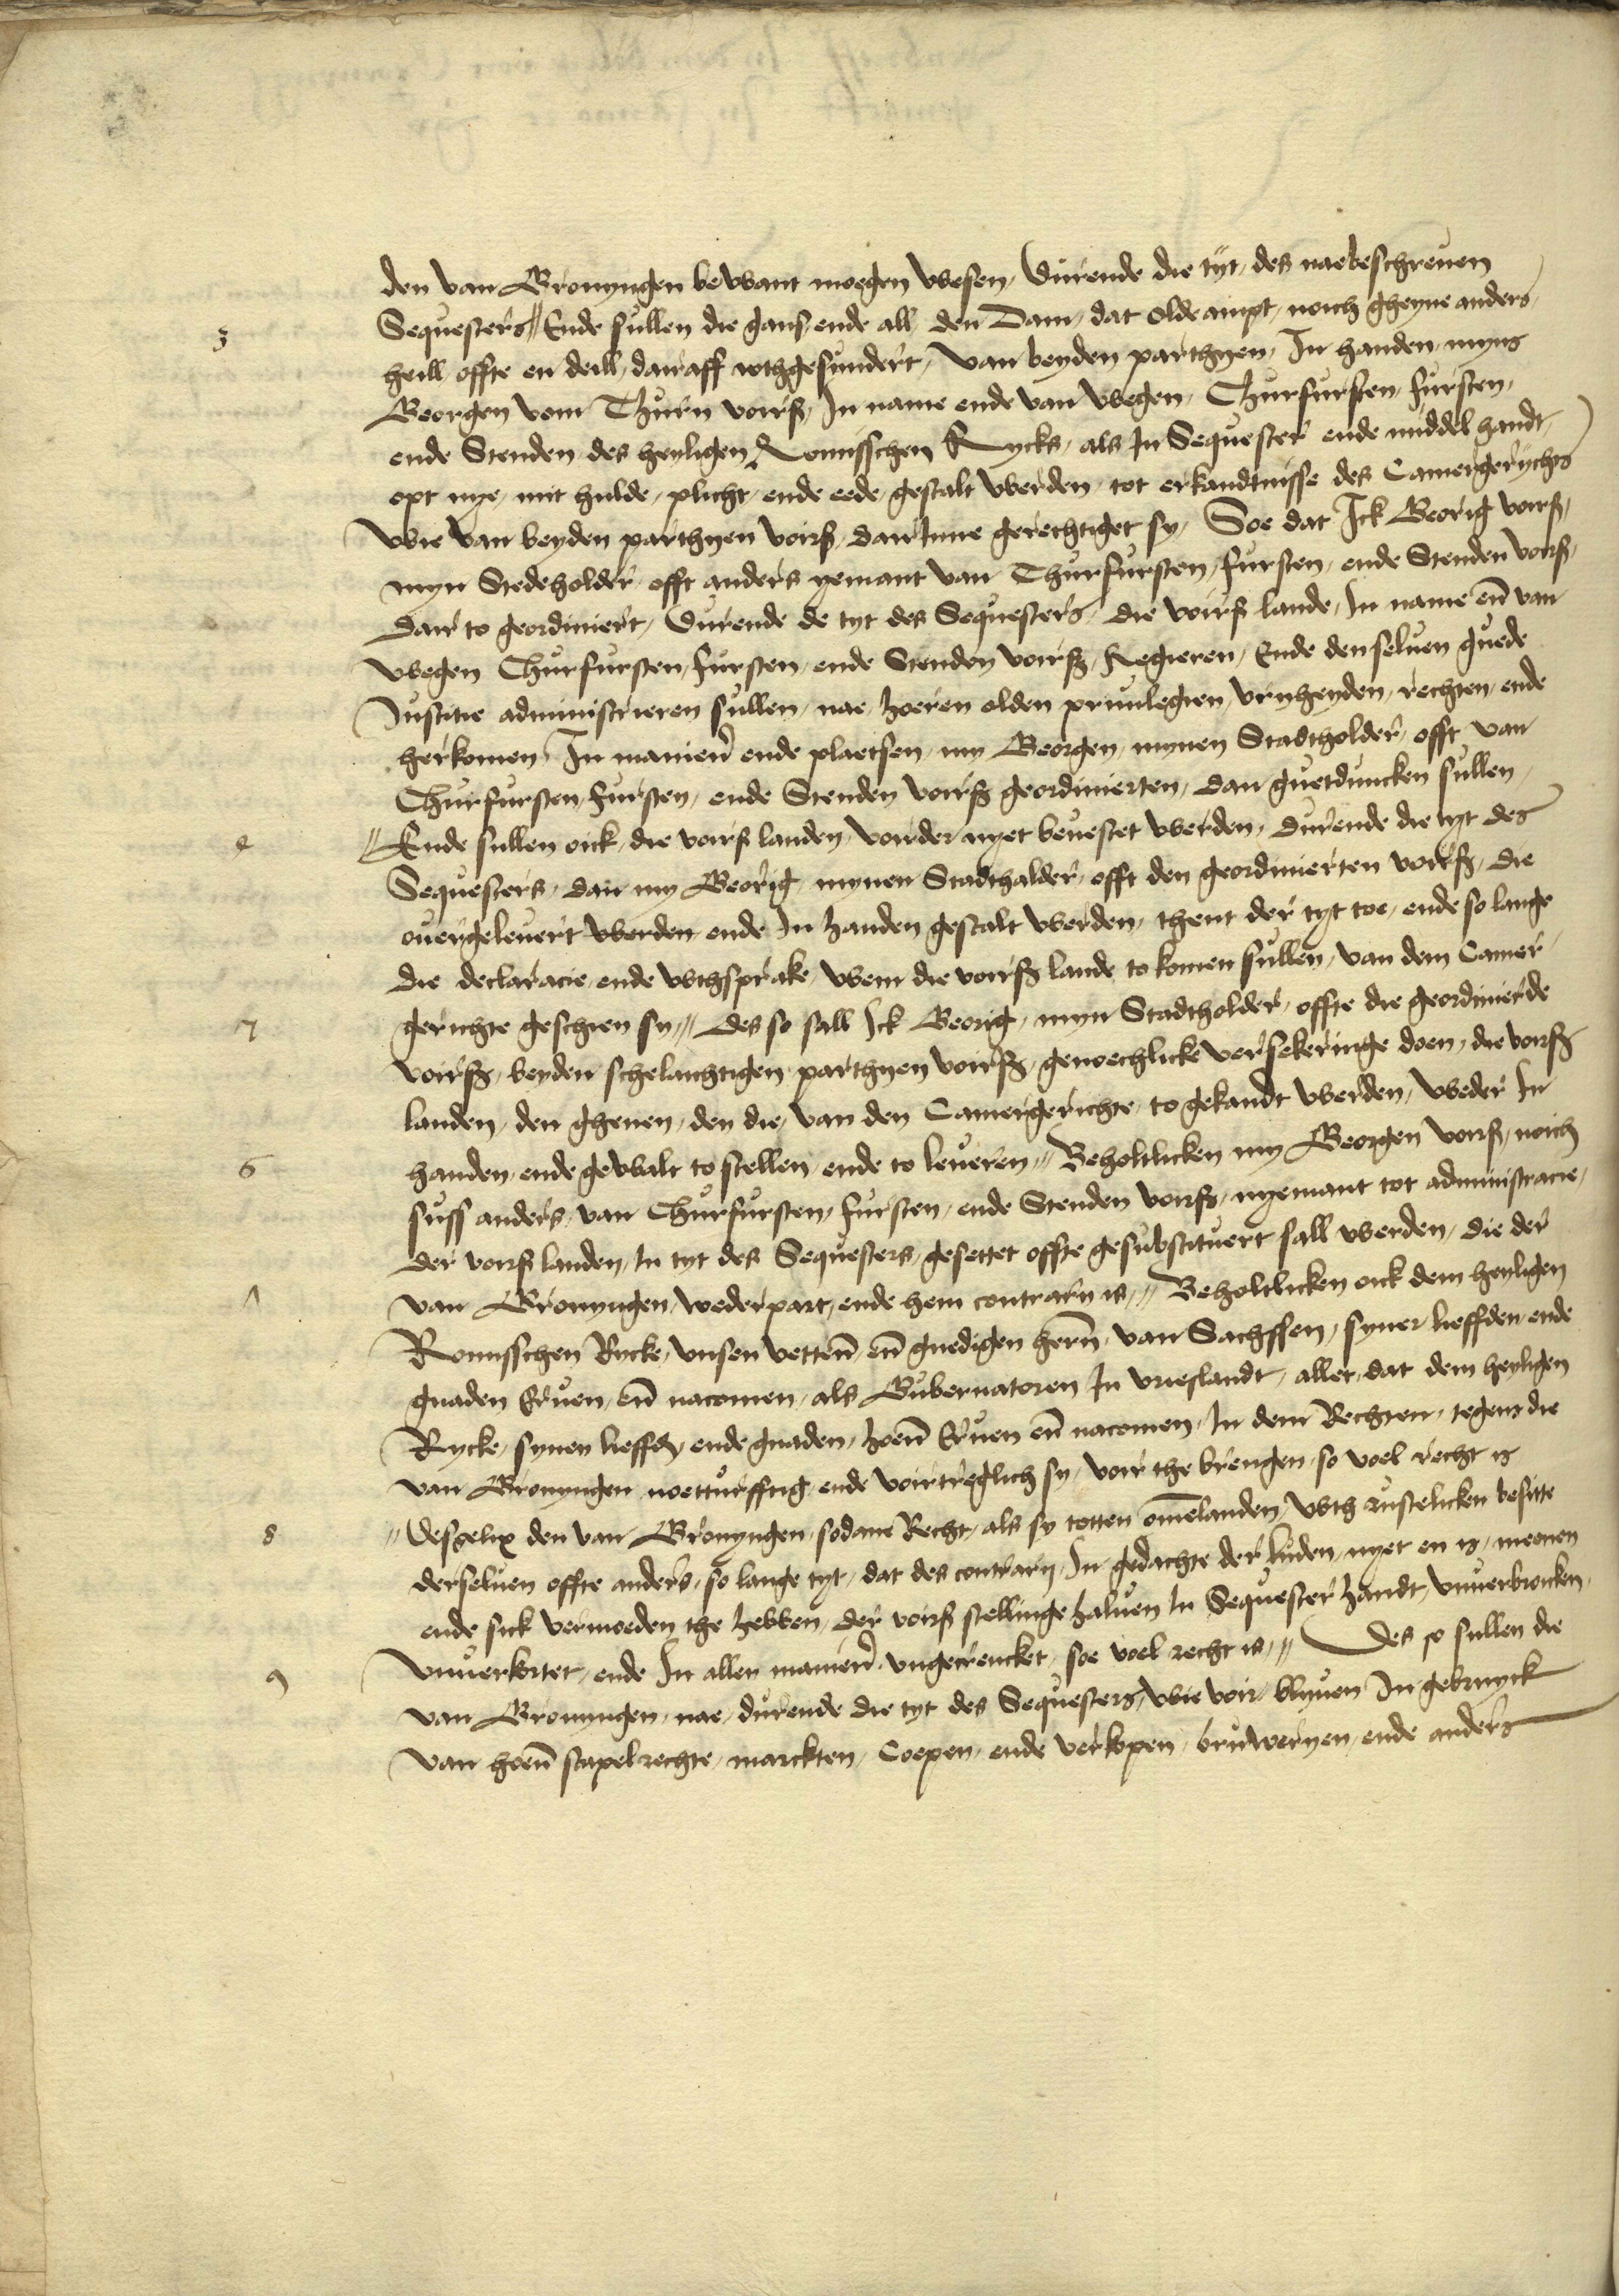 den van Gronyngen bewant moegen wesen, durende die tyt, des naebeschreuen
3
Sequesters // Ende sullen die gans ende all den Dam, dat olde ampt, noich gheyne anders
heill offte en deill, dair aff wthgesundert, van beyden parthyen, In handen myns
Georgen vom Thurn voirß, In name ende van wegen, Churfursten, fursten,
ende Stenden des heyligen Romisschen Rycks, als In Sequester ende middel handt,
opt nye, mit hulde, plicht, ende eede, gestalt werden, tot erkandtnisse des Camergerychts
wie van beyden parthyen voirß, dair Inne gerechtiget sy, Soe dat Ick Georig voirß,
myn Stedeholder, offt anders yemant van Churfursten, fursten, ende Stenden voirß,
dair to geordiniert, durende de tyt des Sequesters, die voirß lande, In name en̄ van
wegen Churfursten, fursten, ende Stenden voirß, Regieren, Ende denseluen guede
Justitie administrieren sullen, nae hoeren olden priuilegien, vryheyden, rechten, ende
herkomen, In manier̄ ende plaetsen, my Georgen, mynen Stadtholder, offt van
Churfursten, fursten, ende Stenden voirß geordinierten, dan guetduncken sullen,
4
// Ende sullen oick, die voirß landen, voirder nyet beuestet werden, durende die tyt des
Sequesters, dan my Georig, mynen Stadthalder, offt den geordinierten voirß, die
ouergeleuert werden, ende In handen gestalt werden, thent der tyt toe, ende so lange
die declaracie, ende wthsprake, wem die voirß lande to komen sullen, van dem Camer
5
gerichte geschien sy, // Des so sall Ick Georig, myn Stadtholder, offte die geordinierde
voirß, beyden schelaichtigen parthyen voirß, genoechlicke versekeringe doen, die voirß
landen, den ghenen, den die, van den Camergerichte, to gekandt werden, weder In
6
handen, ende gewalt to stellen, ende to leueren, // Beholtlicken my Georgen voirß, noich
suss anders, van Churfursten, fursten, ende Stenden voirß, nyemant tot administracie,
der voirß landen, In tyt des Sequesters, gesettet offte gesubstituert sall werden, die der
7
van Gronyngen, wederpart, ende hem contrary is, // Beholtlicken oick dem heyligen
Romisschen Rycke, vnsen vetter̄, en̄ gnedigen hern̄, van Sachssen, syner lieffden, ende
gnaden Eruen, en̄ nacomen, als Gubernatoren In vrieslandt, allet, dat dem heyligen
Rycke, synen lieffdn, ende gnaden, hoer̄ Eruen en̄ nacomen, In dem Rechten, tegens die
van Gronyngen noetturfftig, ende voirtreglich sy, voir the brengen, so voel recht is
8
// Desgelix den van Gronyngen, sodane Recht, als sy totten om̄elanden, wth rustelicken besitte
derseluen offte anders, so lange tyt, dat des contrary, In gedachte der luden, nyet en is, meenen
ende sick vermoeden the hebben, der voirß stellinge haluen In Sequester handt, vnuerbroicken,
9
vnuerkortet, ende In allen manier̄, vngecrencket, soe voel recht is, // Des so sullen die
van Gronyngen, nae, durende die tyt des Sequesters, wie voir, blyuen In gebruyck
van hoer̄ stapelrechte, marckten, Coepen, ende verkopen, bruweryen, ende anders